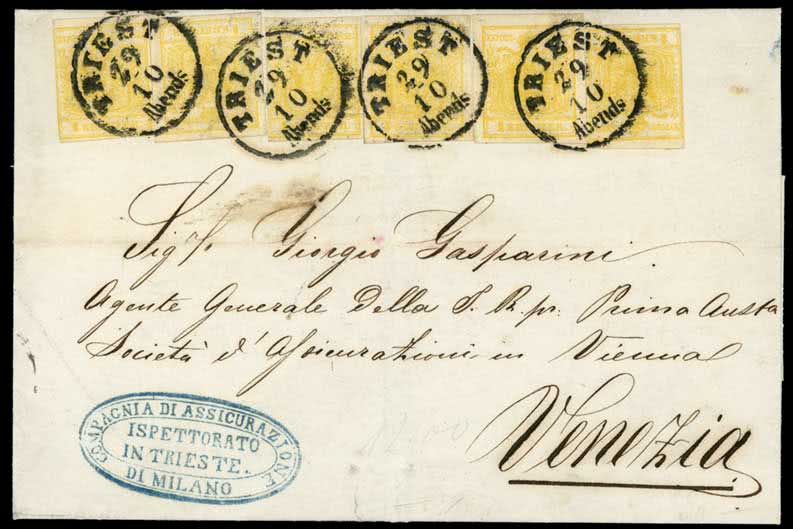 TRIEST
29
10
Abends
TRIEST
29
10
Abends
TRIEST
29
10
Abends
TRIEST
29
10
Abends
Sigr. Giorgio Gasparini
Agente Generale Della I. R. pr. Prima Austa
Società d'Assicurazioni in Vienna
Venezia
COMPAGNIA DI ASSICURAZIONE
ISPETTORATO
IN TRIESTE.
DI MILANO